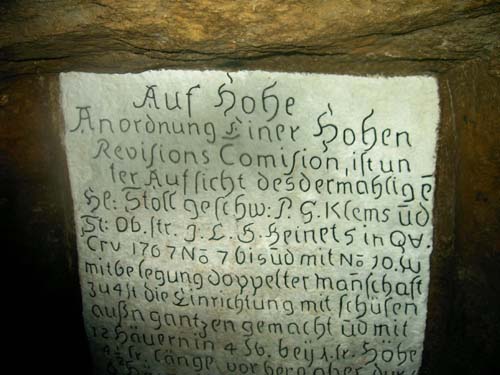 Auf hohe
Anordnung Einer hohen
Reviſions Comiſion, iſt un
ter Aufſicht des dermahligē
He: Stoll geſchw: P. G. Klems ūd
St: Ob. ſtr. J. L. H. Heinets in QV.
Crv 1767 No 7 bis ūd mit No 10. w
mit belegung doppelter man̄ſchaft
zu 4ſt die Einrichtung mit ſchüſen
außn gantzen gemacht ūd mit
12 häuern in 4 56. beÿ 1. fr. Höhe
4½ fr. Länge vor berg aber